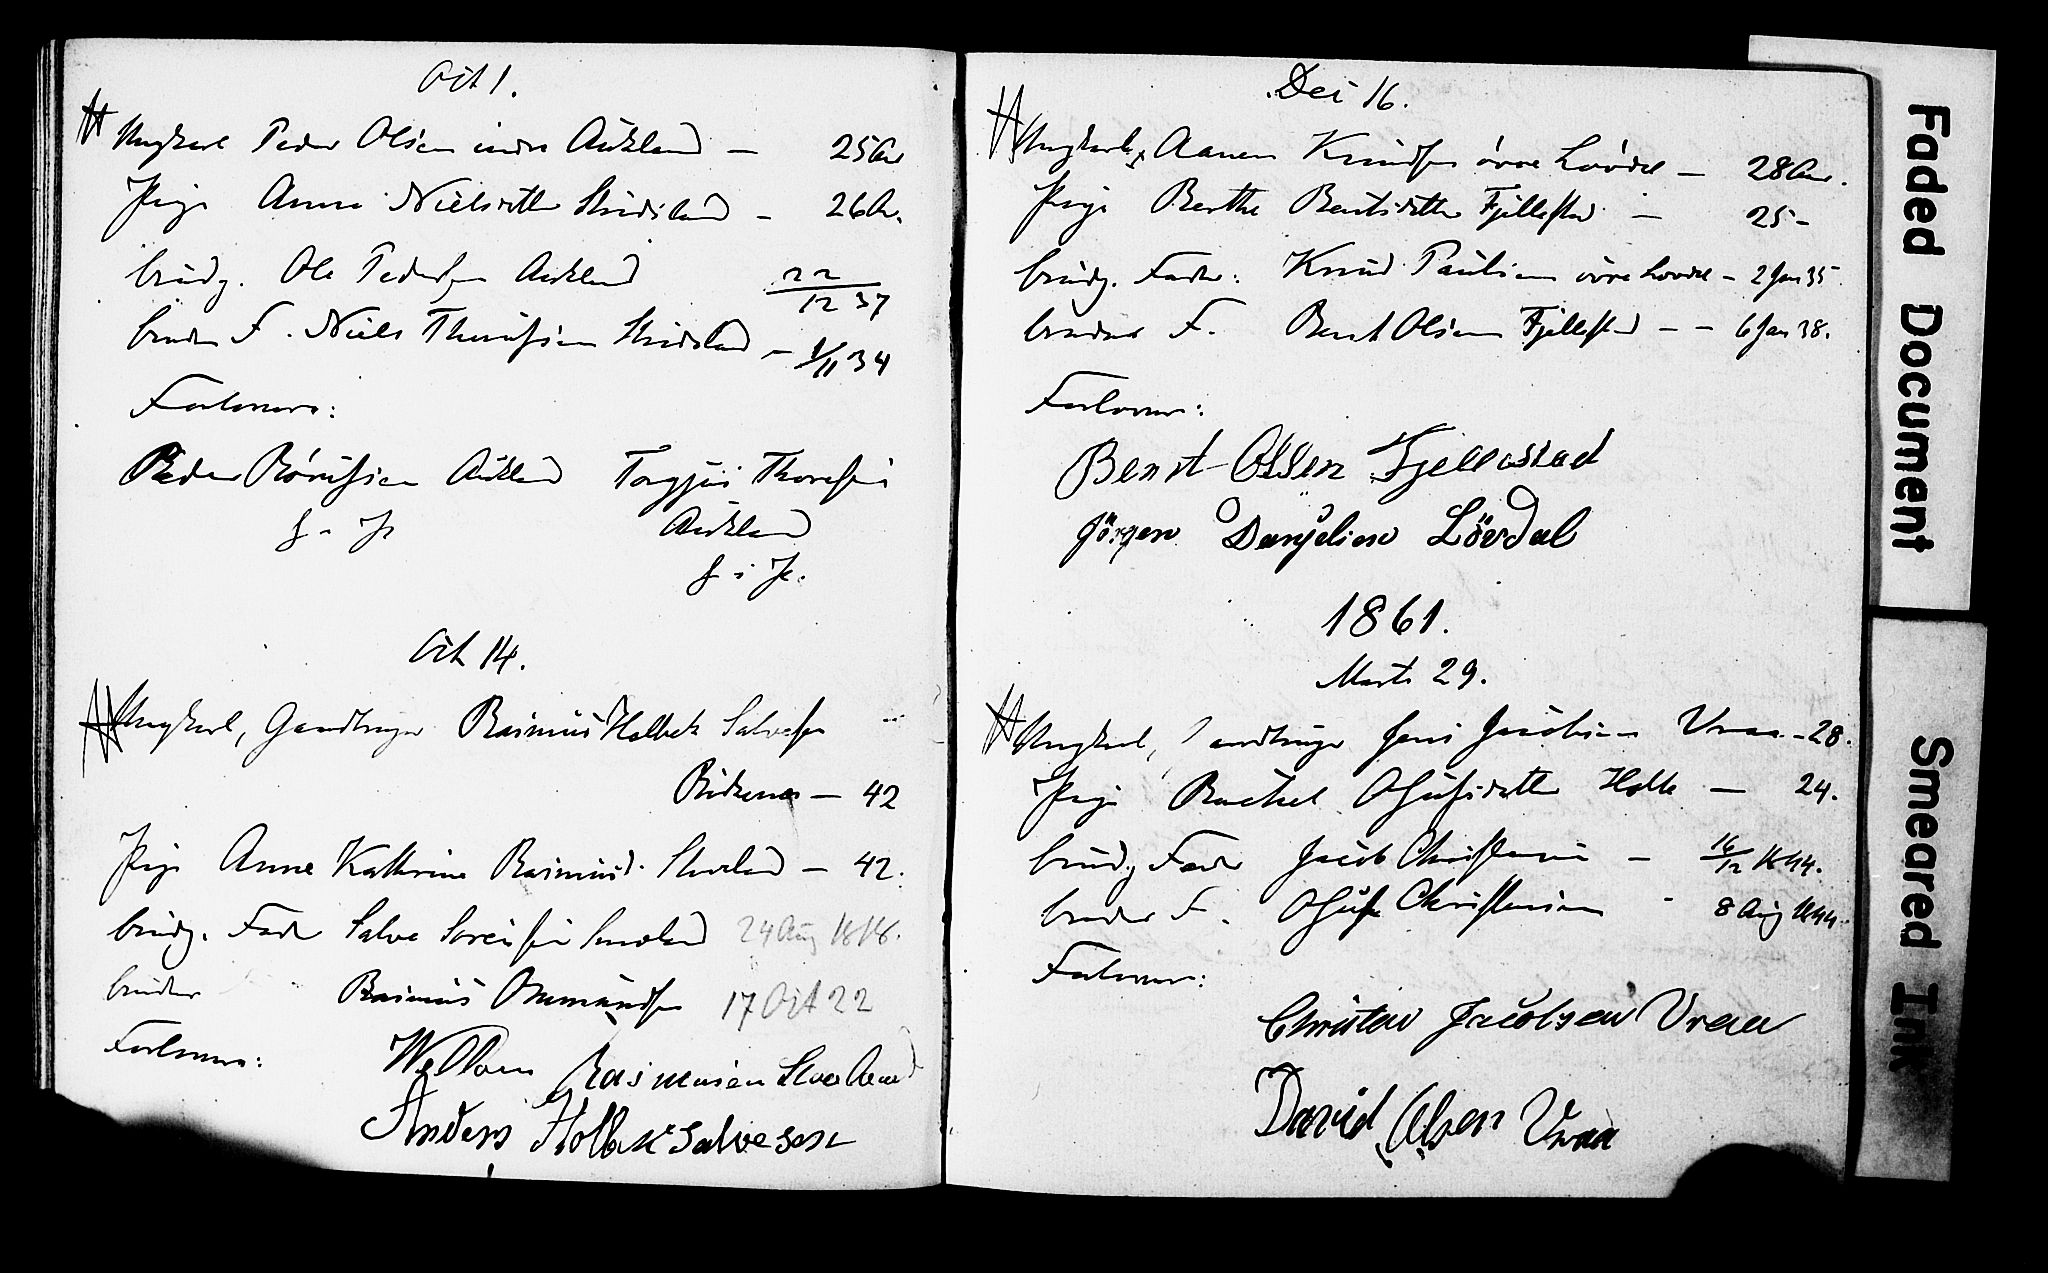 Oct 1.
Ungkarl Peder Olsen indre Aukland — 25 Aar
Pige Anna Nielsdtter Skudsland — 26 Ar.
brudg. Ole Pedersen Aukland 22/12 37
bruden F. Niels Thorussen Skudsland — 1/11 34
Forlovere:
Peder Rørussen Aukland Torgjus Thoressen
Aukland
Oct 14.
Ungkarl, Gaardbruger Rasmus Holbek Salvesen
— 42
Pige Anne Kathrine Rasmusd. — 42.
brudg. Fader Salve Sørensen 24 Aug 1818.
bruden Rasmus Ommundsen 17 Oct 22
Forlovere: Rasmusen
Anders Holbek Salvesen
Dec 16.
Ungkarl, Aanen Knudsen øvre Løvdal — 28 Aar.
Pige Berthe Bentsdatter Fjellestad — 25 -
brudg. Fader: Knud Paulsen øvre Lovdal - 2 Jan 35
brudens F. Bent Olsen Fjellestad - - 6 Jan 38.
Forlovere:
Bent Olssen Fjellestad
Jörgen Danjelsen Lövdal
1861.
Marts 29.
Ungkarl, Gaardbruger Jens Jacobsen Vraa - 28.
Pige Rachel Olufsdatter Holte — 24.
brudg Fader Jacob Christensen — 16/12 1844.
brudens F. Oluf Christensen - 8 Aug 1844.
Forlovere:
Christen Jacobsen Vraa
David Olsen Vraa
Faded Document
Smeared Ink